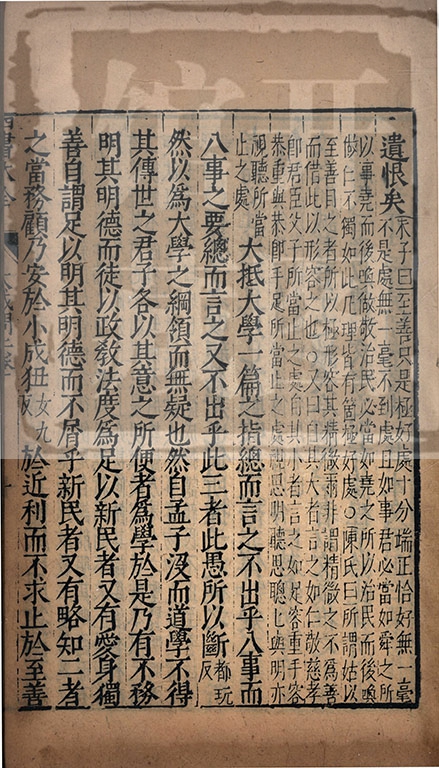 遺恨矣朱子曰至善只是極好處十分端正恰好無一毫
不是處無一毫不到處且如事君必當如舜之所
以事堯而後喚做敬治民必當如堯之所以治民而後喚
做仁不獨如此凡理皆有箇極好處○陳氏曰所謂姑以
至善目之者所以極形容其精微爾非謂精微之不為善
而借此以形容之也○又曰自其大者言之如仁敬慈孝
即君臣父子所當止之處自其小者言之如足容重手容
恭重與恭即手足所當止之處視思明聽思聰聰與明亦
視聽所當
止之處
大抵大學一篇之指總而言之不出乎八事而
八事之要總而言之又不出乎此三者此愚所以斷都玩反
然以為大學之綱領而無疑也然自孟子沒而道學不得
其傳世之君子各以其意之所便者為學於是乃有不務
明其明德而徒以政教法度為足以新民者又有愛身獨
善自謂足以明其明德而不屑乎新民者又有略知二者
之當務顧乃安於小成狃女九反於近利而不求止於至善